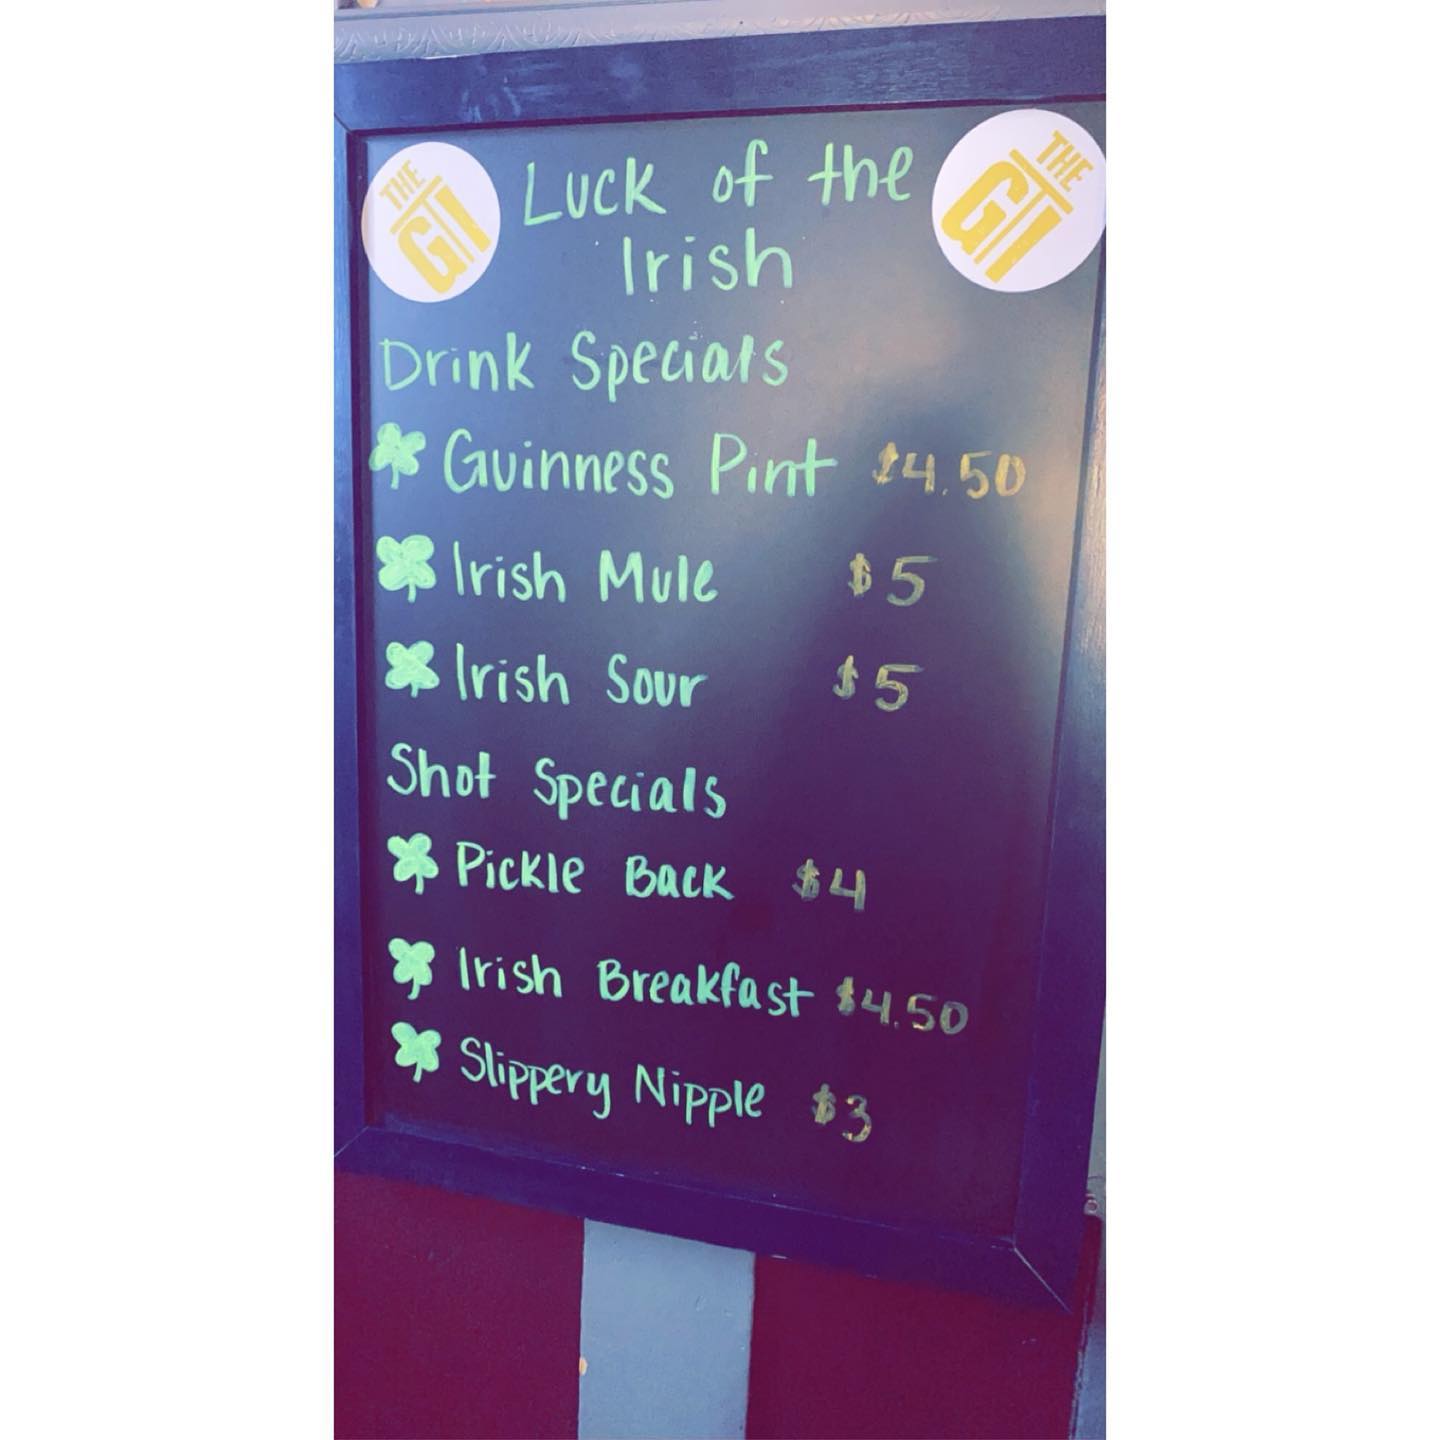 THE GI
Luck of the
THE GI
Irish
Drink Specials
Guinness Pint $4.50
Irish Mule $5
Irish Sour $5
Shot Specials
Pickle Back $4
Irish Breakfast $4.50
Slippery Nipple $3